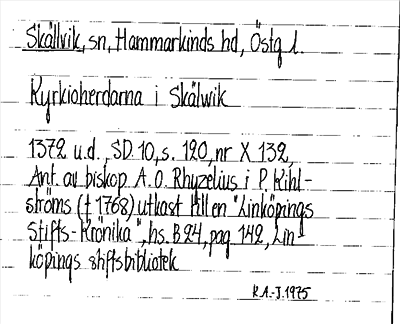 Skällvik, sn, Hammarkinds hd, Östg l.
Kyrkioherdarna i Skälwik
1372 u.d., SD 10, s. 120, nr X 132,
Ant. av biskop A.O. Rhyzelius i P. Kihl-
ströms († 1768) utkast till en "Linköpings
Stifts-Krönika", hs. B 24, pag. 142, Lin
köpings stiftsbibliotek
K.A.-J. 1975